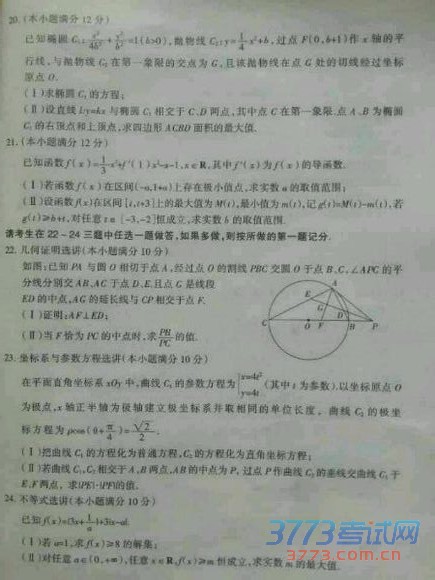 20.(本小题满分12分)
已知椭圆C₁:x²/4b²+y²/b²=1(b>0),抛物线C₂:y=1/4x²+b,过点F(0,b+1)作x轴的平
行线,与抛物线C₂在第一象限的交点为G,且该抛物线在点G处的切线经过坐标
原点O.
(Ⅰ)求椭圆C₁的方程;
(Ⅱ)设直线l:y=kx与椭圆C₁相交于C、D两点,其中点C在第一象限.点A、B为椭圆
C₁的右顶点和上顶点,求四边形ACBD面积的最大值.
21.(本小题满分12分)
已知函数f(x)=1/3x³+f′(1)x²-x-1,x∈R,其中f′(x)为f(x)的导函数.
(Ⅰ)若函数f(x)在区间(-a,1+a)上存在极小值点,求实数a的取值范围;
(Ⅱ)设函数f(x)在区间[t,t+3]上的最大值为M(t),最小值为m(t),记g(t)=M(t)-m(t),若
g(t)≥b+t,对任意t∈[-3,-2]恒成立,求实数b的取值范围.
请考生在22~24三题中任选一题做答,如果多做,则按所做的第一题记分.
22.几何证明选讲(本小题满分10分)
如图:已知PA与圆O相切于点A,经过点O的割线PBC交圆O于点B、C,∠APC的平
分线分别交AB、AC于点D、E,且点G是线段
ED的中点,AG的延长线与CP相交于点F.
(Ⅰ)证明:AF⊥ED;
(Ⅱ)当F恰为PC的中点时,求PB/PC的值.
A
E
G
D
C
O
F
B
P
23.坐标系与参数方程选讲(本小题满分10分)
在平面直角坐标系xOy中,曲线C₁的参数方程为{x=4t² y=4t(其中t为参数).以坐标原点O
为极点,x轴正半轴为极轴建立极坐标系并取相同的单位长度,曲线C₂的极坐
标方程为ρcos(θ+π/4)=√2/2.
(Ⅰ)把曲线C₁的方程化为普通方程,C₂的方程化为直角坐标方程;
(Ⅱ)若曲线C₁,C₂相交于A,B两点,AB的中点为P,过点P作曲线C₂的垂线交曲线C₁于
E,F两点,求|PE|·|PF|的值.
24.不等式选讲(本小题满分10分)
已知f(x)=|3x+1/a|+3|x-a|.
(Ⅰ)若a=1,求f(x)≥8的解集;
(Ⅱ)对任意a∈(0,+∞),任意x∈R,f(x)≥m恒成立,求实数m的最大值.
3773考试网
3773.com.cn